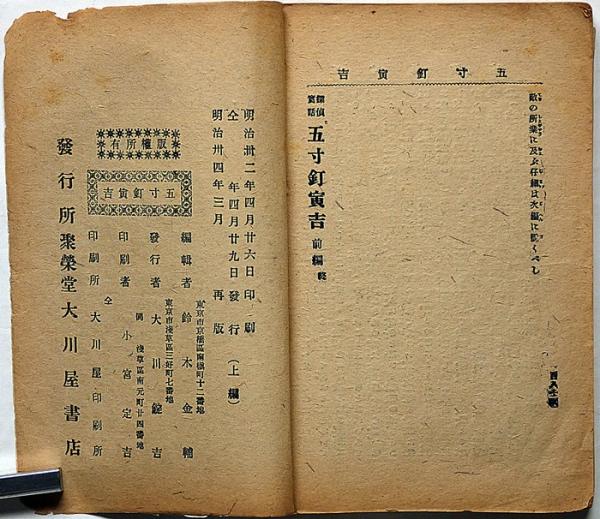 吉寅釘寸五
敵の所業に及ぶ仔細は次編に説くべし
探偵實話 五寸釘寅吉 前編 終
明治卅二年四月廿六日印刷
仝 年四月廿九日發行(上編)
明治卅四年三月 再版
東京市京橋區南槇町十二番地
編輯者 鈴木金輔
東京市淺草區三好町七番地
發行者 大川錠吉
淺草區南元町廿四番地
印刷者 小宮定吉
仝
印刷所 大川屋印刷所
有所權版
吉寅釘寸五
發行所 聚榮堂大川屋書店